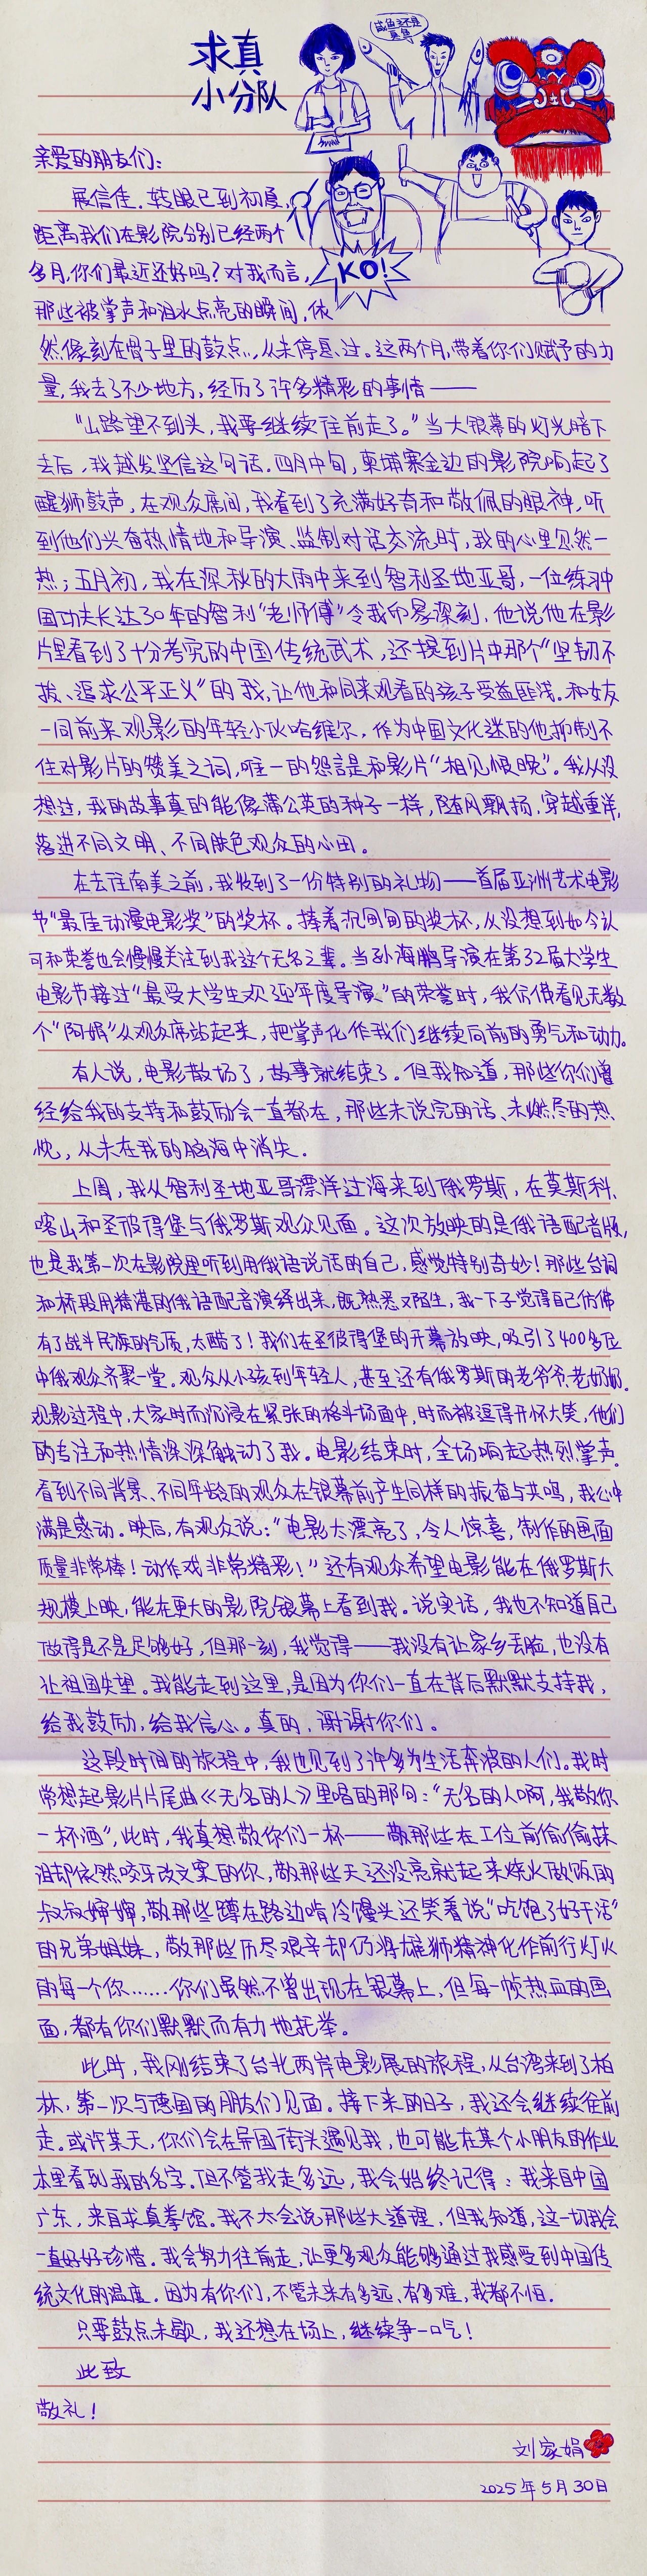 求真
小分队
咸鱼还是
臭鱼
KO!
亲爱的朋友们：
展信佳。转眼已到初夏，
距离我们在影院分别已经两个
多月，你们最近还好吗？对我而言，
那些被掌声和泪水点亮的瞬间，依
然像刻在骨子里的鼓点，从未停息过。这两个月，带着你们赋予的力
量，我去了不少地方，经历了许多精彩的事情——
“山路望不到头，我要继续往前走了。”当大银幕的灯光暗下
去后，我越发坚信这句话。四月中旬，柬埔寨金边的影院响起了
醒狮鼓声，在观众席间，我看到了充满好奇和敬佩的眼神，听
到他们兴奋热情地和导演、监制对话交流时，我的心里忽然一
热；五月初，我在深秋的大雨中来到智利圣地亚哥，一位练习中
国功夫长达30年的智利“老师傅”令我印象深刻，他说他在影
片里看到了十分考究的中国传统武术，还提到片中那个“坚韧不
拔、追求公平正义”的我，让他和同来观看的孩子受益匪浅。和女友
一同前来观影的年轻小伙哈维尔，作为中国文化迷的他抑制不
住对影片的赞美之词，唯一的怨言是和影片“相见恨晚”。我从没
想过，我的故事真的能像蒲公英的种子一样，随风飘扬，穿越重洋，
落进不同文明、不同肤色观众的心田。
在去往南美之前，我收到了一份特别的礼物——首届亚洲艺术电影
节“最佳动漫电影奖”的奖杯。捧着沉甸甸的奖杯，从没想到如今认
可和荣誉也会慢慢关注到我这个无名之辈。当孙海鹏导演在第32届大学生
电影节接过“最受大学生欢迎年度导演”的荣誉时，我仿佛看见无数
个“阿娟”从观众席站起来，把掌声化作我们继续向前的勇气和动力。
有人说，电影散场了，故事就结束了。但我知道，那些你们曾
经给我的支持和鼓励会一直都在，那些未说完的话、未燃尽的热
忱，从未在我的脑海中消失。
上周，我从智利圣地亚哥漂洋过海来到俄罗斯，在莫斯科、
喀山和圣彼得堡与俄罗斯观众见面。这次放映的是俄语配音版，
也是我第一次在影院里听到用俄语说话的自己，感觉特别奇妙！那些台词
和桥段用精湛的俄语配音演绎出来，既熟悉又陌生，我一下子觉得自己仿佛
有了战斗民族的气质，太酷了！我们在圣彼得堡的开幕放映，吸引了400多位
中俄观众齐聚一堂。观众从小孩到年轻人，甚至还有俄罗斯的老爷爷、老奶奶。
观影过程中，大家时而沉浸在紧张的格斗场面中，时而被逗得开怀大笑，他们
的专注和热情深深触动了我。电影结束时，全场响起热烈掌声。
看到不同背景、不同年龄的观众在银幕前产生同样的振奋与共鸣，我心中
满是感动。映后，有观众说：“电影太漂亮了，令人惊喜，制作的画面
质量非常棒！动作戏非常精彩！”还有观众希望电影能在俄罗斯大
规模上映，能在更大的影院银幕上看到我。说实话，我也不知道自己
做得是不是足够好，但那一刻，我觉得——我没有让家乡丢脸，也没有
让祖国失望。我能走到这里，是因为你们一直在背后默默支持我，
给我鼓励，给我信心。真的，谢谢你们。
这段时间的旅程中，我也见到了许多为生活奔波的人们。我时
常想起影片片尾曲《无名的人》里唱的那句：“无名的人啊，我敬你
一杯酒”，此时，我真想敬你们一杯——敬那些在工位前偷偷抹
泪却依然咬牙改文案的你，敬那些天还没亮就起来烧火做饭的
叔叔婶婶，敬那些蹲在路边啃冷馒头还笑着说“吃饱了好干活”
的兄弟姐妹，敬那些历尽艰辛却仍将雄狮精神化作前行灯火
的每一个你……你们虽然不曾出现在银幕上，但每一帧热血的画
面，都有你们默默而有力地托举。
此时，我刚结束了台北两岸电影展的旅程，从台湾来到了柏
林，第一次与德国的朋友们见面。接下来的日子，我还会继续往前
走。或许某天，你们会在异国街头遇见我，也可能在某个小朋友的作业
本里看到我的名字。但不管我走多远，我会始终记得：我来自中国
广东，来自求真拳馆。我不太会说那些大道理，但我知道，这一切我会
一直好好珍惜。我会努力往前走，让更多观众能够通过我感受到中国传
统文化的温度。因为有你们，不管未来有多远、有多难，我都不怕。
只要鼓点未歇，我还想在场上，继续争一口气！
此致
敬礼！
刘家娟
2025年5月30日